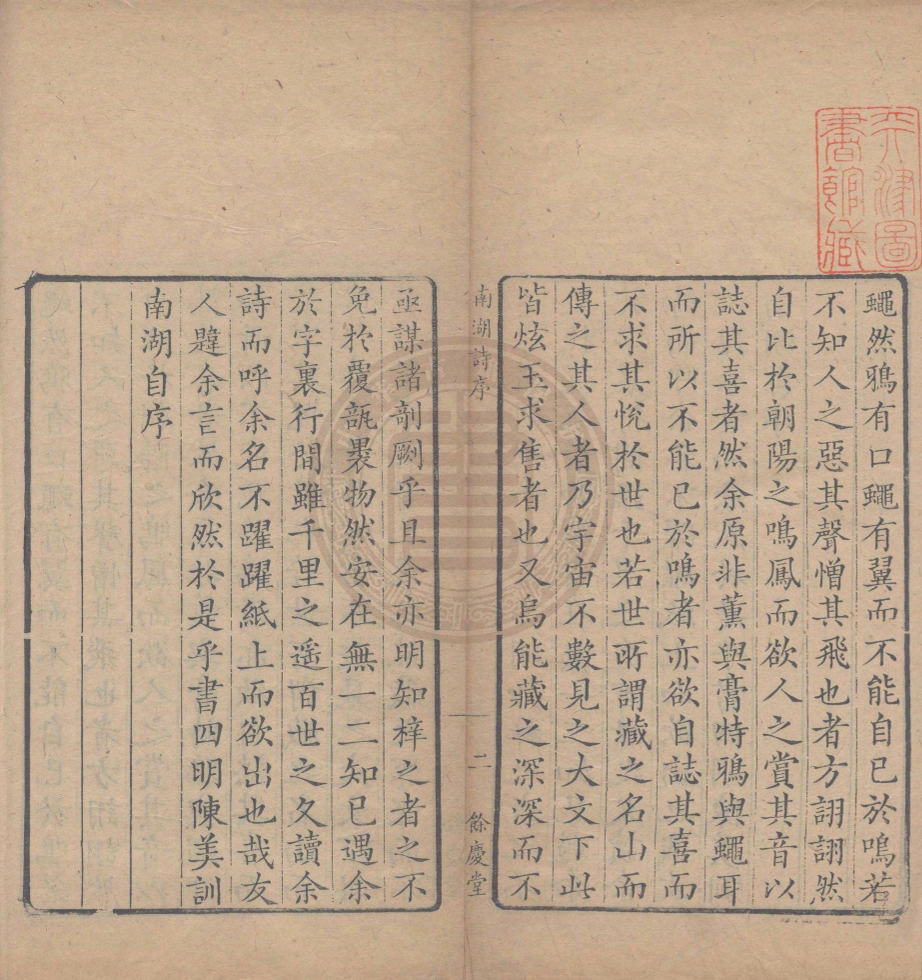 蠅然鴉有口蠅有翼而不能自已於嗚若
不知人之惡其聲憎其飛也者方詡詡然
自比於朝陽之鳴鳳而欲人之賞其音以
誌其喜者然余原非薰與膏特鴉與蠅耳
而所以不能已於鳴者亦欲自誌其喜而
不求其悅於世也若世所謂藏之名山而
傳之其人者乃宇宙不數見之大文下此
皆炫玉求售者也又烏能藏之深深而不
南湖詩序
二
餘慶堂
亟謀諸剞劂乎且余亦明知梓之者之不
免於覆瓿裹物然安在無一二知已遇余
於字裏行間雖千里之遥百世之久讀余
詩而呼余名不躍躍紙上而欲出也哉友
人韙余言而欣然於是乎書四明陳美訓
南湖自序
天津圖
書館藏